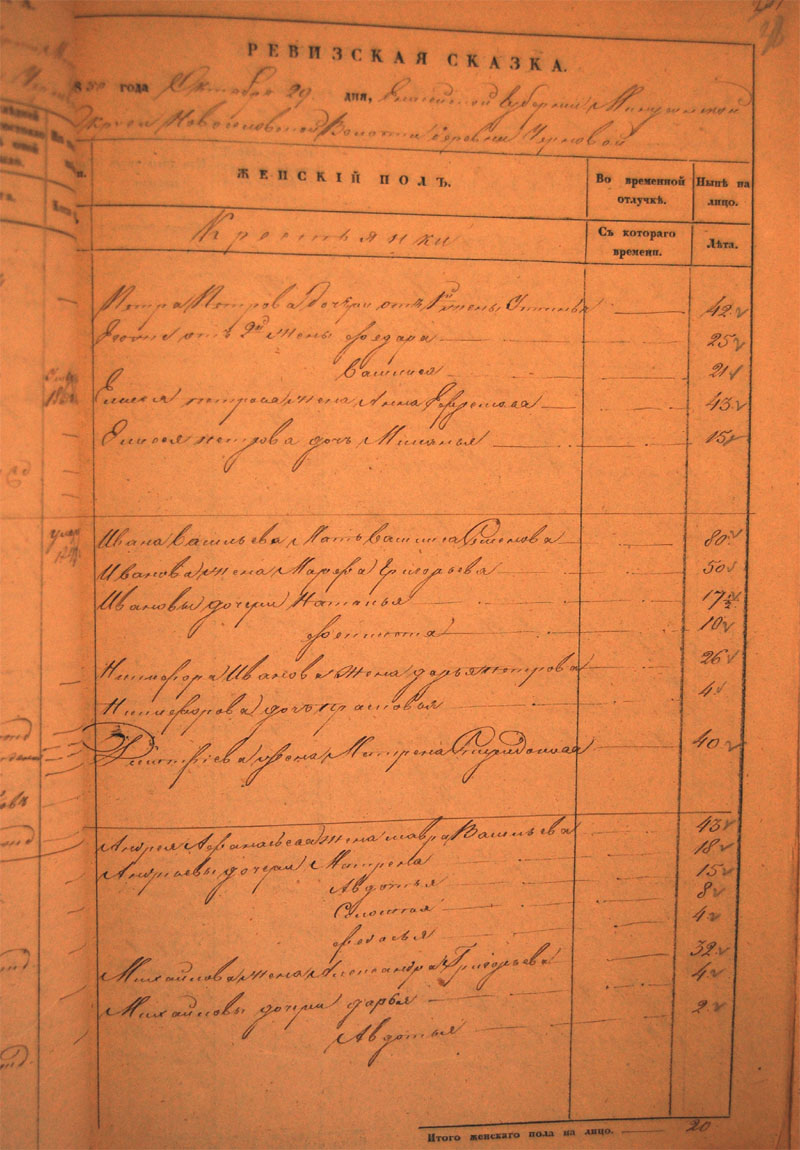 РЕВИЗСКАЯ СКАЗКА.
18 50 года Октября 29 дня, Енисейской Губернии Минусинской
Округи Новоселовской Волости деревни Черновой
ЖЕНСКІЙ ПОЛЪ.
Во временной отлучкѣ.
Нынѣ на лицо.
Крестьянки
Съ котораго времени.
Лѣта.
Петра Петрова дочери отъ 1й жены Устинья 42
отъ 2й жены Федора 25
Василиса 21
Елисея Петрова жена Анна Ефремова 43
Елисея Петрова дочь Маланья 15
Ивана Васильева Мать Василиса Семенова 80
Иванова жена Марфа Григорьева 50
Ивановы дочери Наталья 17 1/2
10
Никифора Иванова жена дарья петрова 26
Никифорова дочь прасковья 4
Дмитріева жена Матрена Спиридонова 40
Андрея Афанасьева жена мавра Васильева 43
Андреевы дочери Матрена 18
Авдотья 15
8
федосья 4
Михайлова жена Александра Григорьева 32
Михайловы дочери дарья 4
Авдотья 2
Итого женскаго пола на лицо. 20